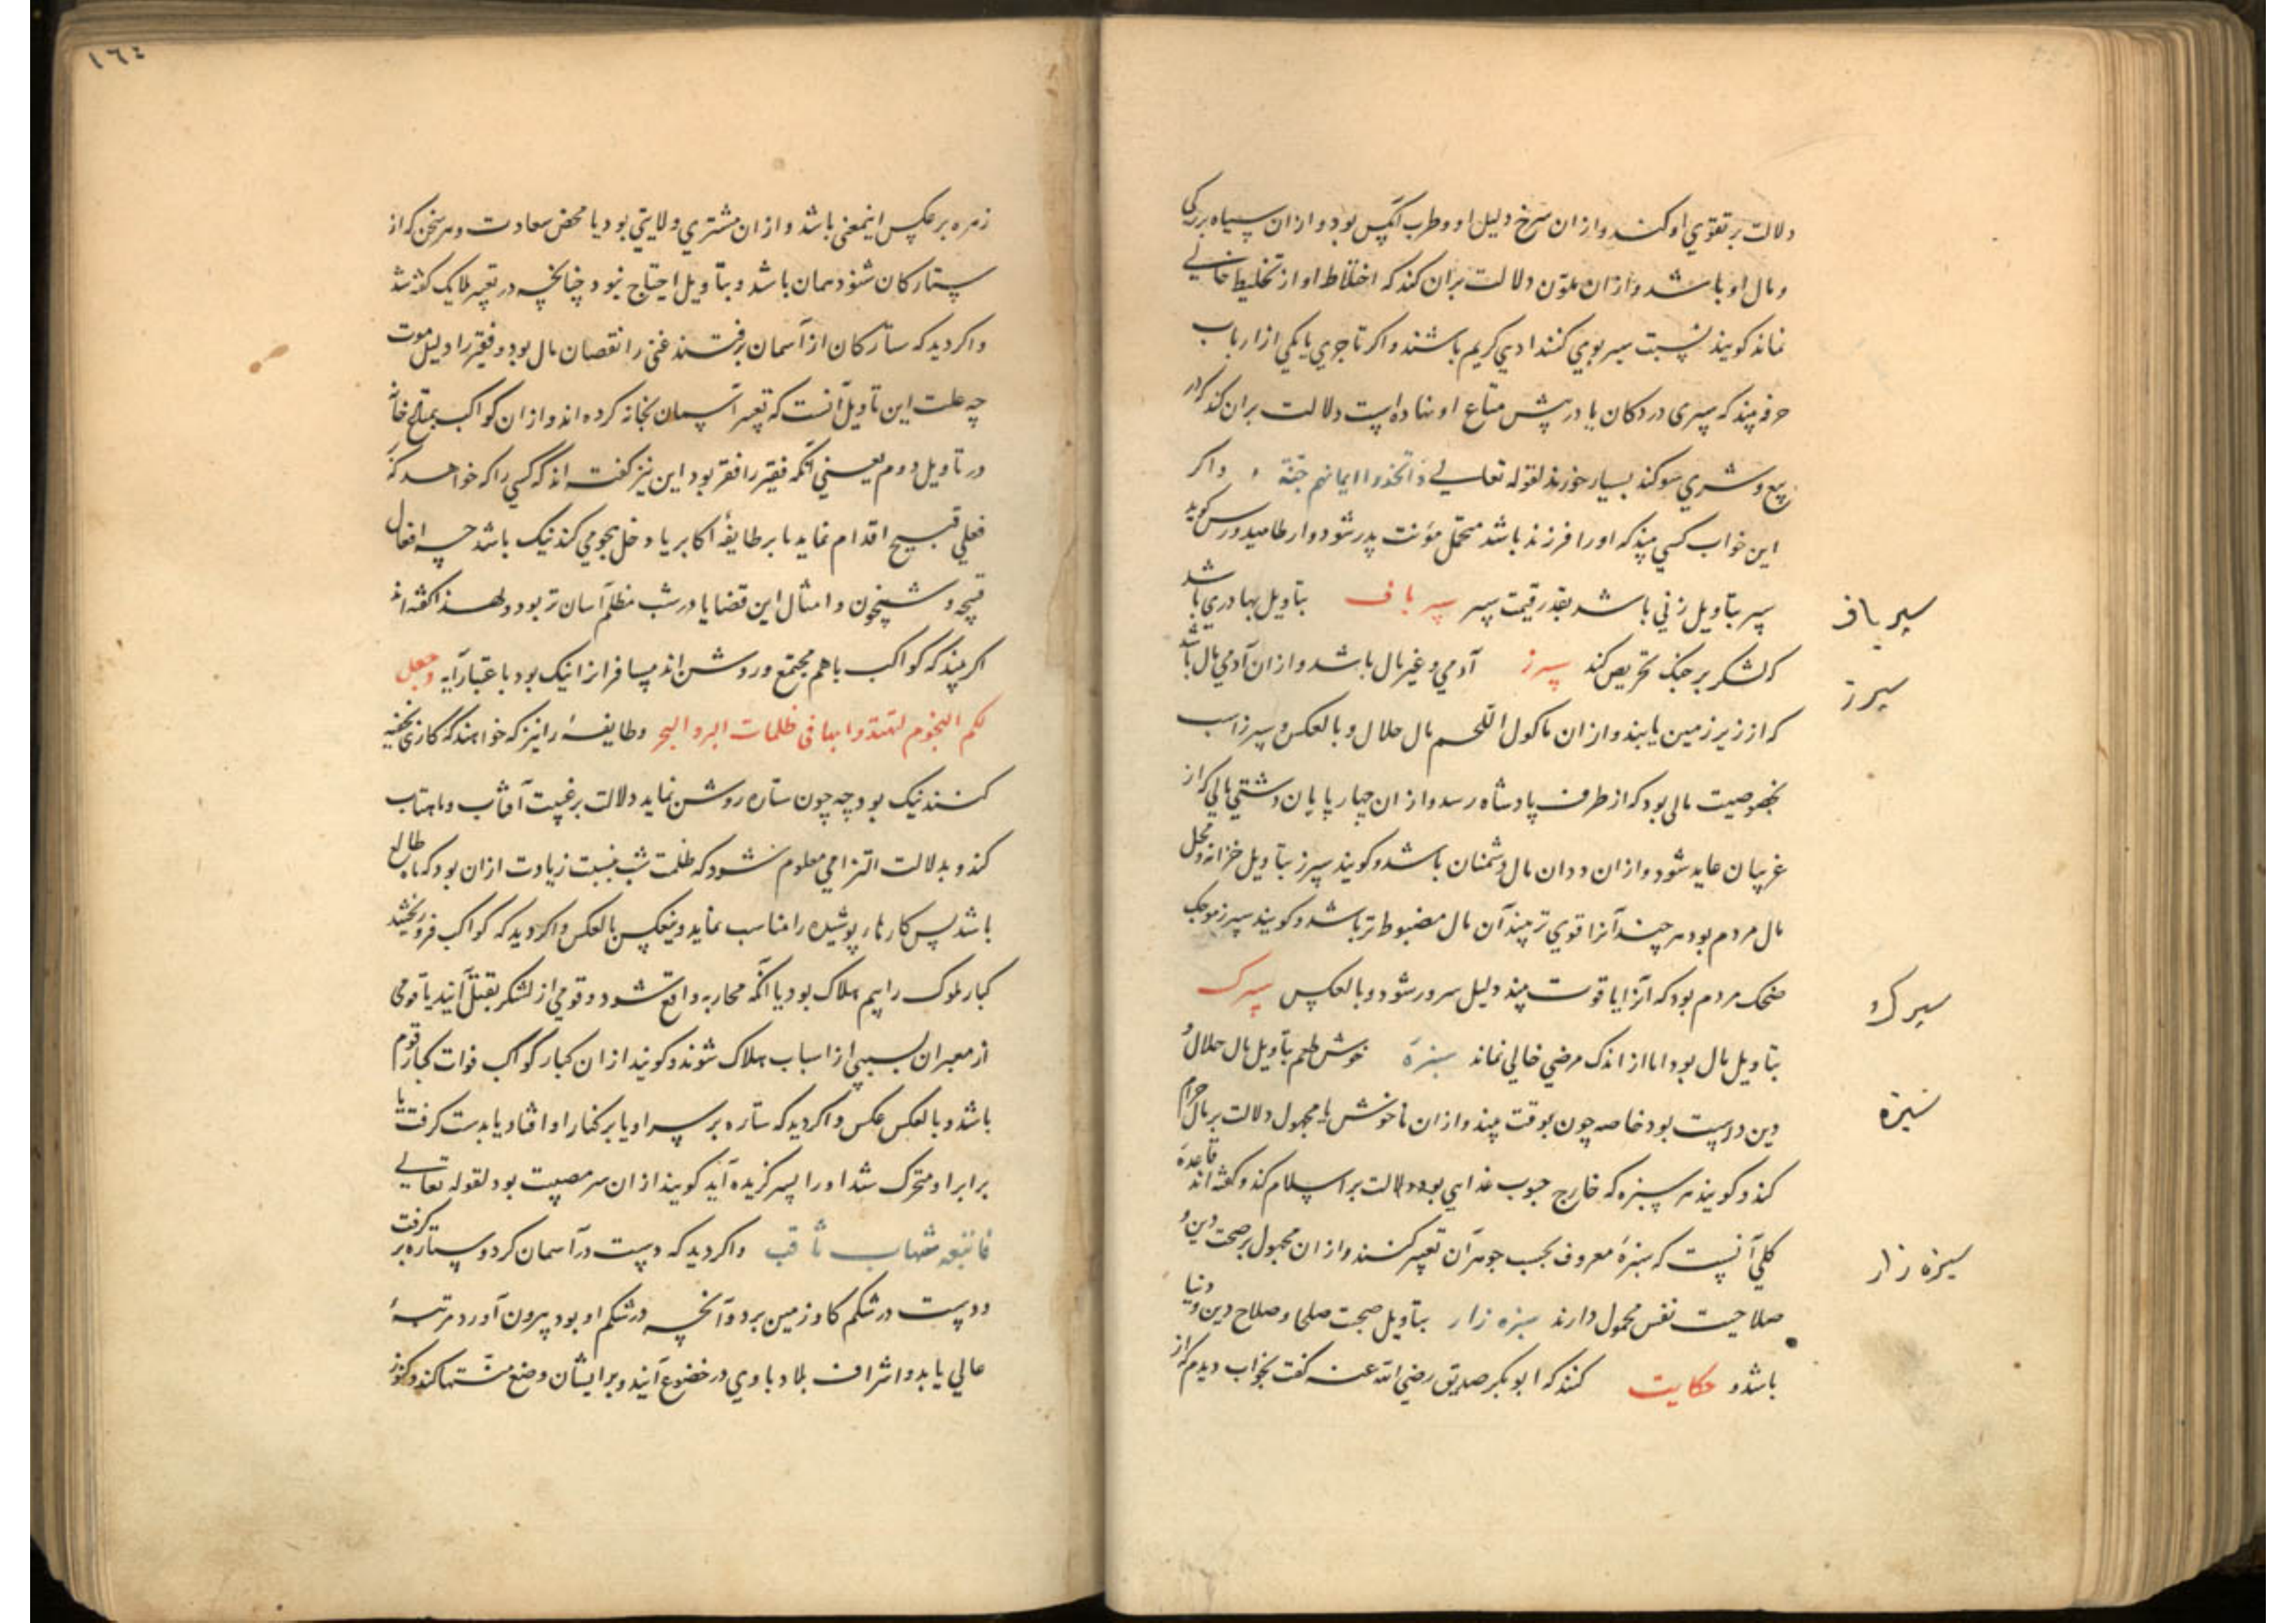 دلالت بر تقوي او کنند و از ان سرخ دلیل او و طرب آنکس بود و از ان سیاه بزرکی
و مال او باشد و از ان ملون دلالت بران کند که اختلاط او از تخلیط خالی
نماند کویند نسبت سپر بوي کنند ادبي کریم باشند و اکر تاجري یا یکي از ارباب
حرفه بیند که سپری در دکان یا در پیش متاع او نهاده است دلالت بران کند که در
بیع و شري سوکند بسیار خورند لقوله تعالی اتخذوا ایمانهم جنة و اکر
این خواب کسي بیند که او را فرزند باشد متحمل مؤنت پدر شود
سپر بتاویل زني باشد بقدر قیمت سپر سپر باف بتاویل بهادري باشد
که لشکر بر جنک تحریص کند سپرز آدمي و غیر مال باشد و از ان آدمي مال باشد
که از زیر زمین یابند و از ان ماکول اللحم مال حلال و بالعکس و سپرز اسب
بخصوصیت مالی بود که از طرف پادشاه رسد و از ان چهارپایان دشتي مالي که از
غریبان عاید شود و از ان ددان مال دشمنان باشد و کویند سپرز بتاویل خزانه و محل
مال مردم بود هر چند آنرا قوي تر بیند آن مال مضبوط تر باشد و کویند سپرز موجب
ضحک مردم بود که آنرا با قوت بیند دلیل سرور شود و بالعکس سپرک
بتاویل مال بود اما از اندک مرضي خالي نماند سبزه خوش طعم بتاویل مال حلال و
دین درست بود خاصه چون بوقت بیند و از ان ناخوش یا مجهول دلالت بر مال حرام
کند و کویند هر سبزه که خارج حبوب غدایي بود دلالت بر اسلام کند و کفته اند قاعدهٔ
کلي آنست که سبزهٔ معروف بحسب جوهر آن تعبیر کنند و از ان مجهول بر صحت دین و
صلاحیت نفس محمول دارند سبزه زار بتاویل صحبت صلحا و صلاح دین و دنیا
باشد و حکایت کنند که ابو بکر صدیق رضي الله عنه کفت بخواب دیدم که از
سپر باف
سپرز
سپرک
سبزه
سبزه زار
١٦٤
زهره بر عکس اینمعنی باشد و از ان مشتري ولایتي بود با محض سعادت و هر سخن که از
ستارکان شنود همان باشد و بتاویل احتیاج نبود چنانچه در تعبیر ملایک کفته شد
و اکر دید که ستارکان از آسمان برفتند غني را نقصان مال بود و فقیر را دلیل موت
چه علت این تاویل آنست که تعبیر آسمان بخانه کرده اند و از ان کواکب بمتاع خانه
در تاویل دوم یعني آنکه فقیر را فقر بود این نیز کفته اند که کسي را که خواهد که
فعلي قبیح اقدام نماید یا بر طایفهٔ اکابر یا دخل هجومي کند نیک باشد چه افعال
قبیحه و شبیخون و امثال این قضایا در شب مظلم آسان تر بود و لهذا کفته اند
اکر بیند که کواکب باهم مجتمع و روشن اند مسافرانرا نیک بود باعتبار آیه وجعل
لکم النجوم لتهتدوا بها فی ظلمات البر والبحر و طایفهٔ را نیز که خواهند که کاری بخفیه
کنند نیک بود چه چون ستاره روشن نماید دلالت بر غیبت آفتاب و ماهتاب
کند و بدلالت التزامي معلوم شود که ظلمت شب نسبت زیادت از ان بود که ماه طالع
باشد پس کارهاء پوشیده را مناسب نماید و ینعکس بالعکس و اکر دید که کواکب فرو ریختند
کبار ملوک را بیم هلاک بود یا آنکه محاربه واقع شود و قومي از لشکر بقتل آیند یا قومی
از معبران بسببي از اسباب هلاک شوند و کویند از ان کبار کواکب فوات کبار قوم
باشد و بالعکس عکس و اکر دید که ستاره بر سر او یا بر کنار او افتاد یا بدست کرفت یا
برابر او متحرک شد او را پسر کزیده آید کویند از ان سر مصیبت بود لقوله تعالی
فاتبعه شهاب ثاقب و اکر دید که دست در آسمان کرد و ستاره بر کرفت
و دست در شکم کاو زمین برد و آنچه در شکم او بود بیرون آورد مرتبهٔ
عالي یابد و اشراف بلاد با وي در خضوع آیند و بر ایشان وضع منتها کند و کنوز